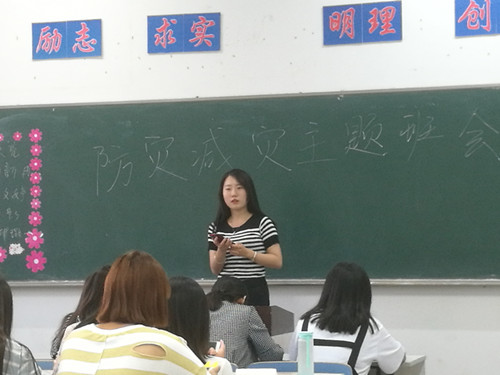 励志 求实 明理 创
防灾减灾主题班会